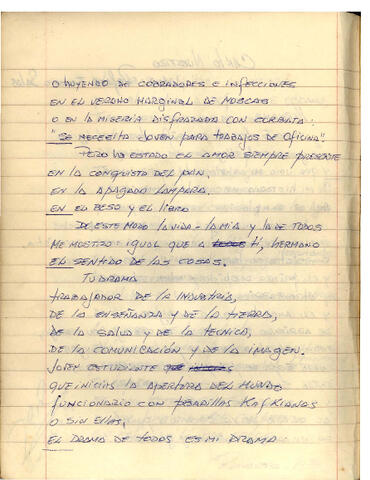 O HUYENDO DE COBRADORES E INFECCIONES
EN EL VERANO MARGINAL DE MOSCAS
O EN LA MISERIA DISFRAZADA CON CORBATA:
"SE NECESITA JOVEN PARA TRABAJOS DE OFICINA".
PERO HA ESTADO EL AMOR SIEMPRE PRESENTE
EN LA CONQUISTA DEL PAN,
EN LA APAGADA LAMPARA,
EN EL BESO Y EL LIBRO
DE ESTE MODO LA VIDA - LA MIA Y LA DE TODOS
ME MOSTRO IGUAL QUE A TI, HERMANO
EL SENTIDO DE LAS COSAS.
TU DRAMA
TRABAJADOR DE LA INDUSTRIA,
DE LA ENSEÑANZA Y DE LA TIERRA,
DE LA SALUD Y DE LA TECNICA,
DE LA COMUNICACIÓN Y DE LA IMAGEN.
JOVEN ESTUDIANTE
QUE INICIAS LA APERTURA DEL MUNDO
FUNCIONARIO CON PESADILLAS KAFKIANAS
O SIN ELLAS,
EL DRAMA DE TODOS ES MI DRAMA